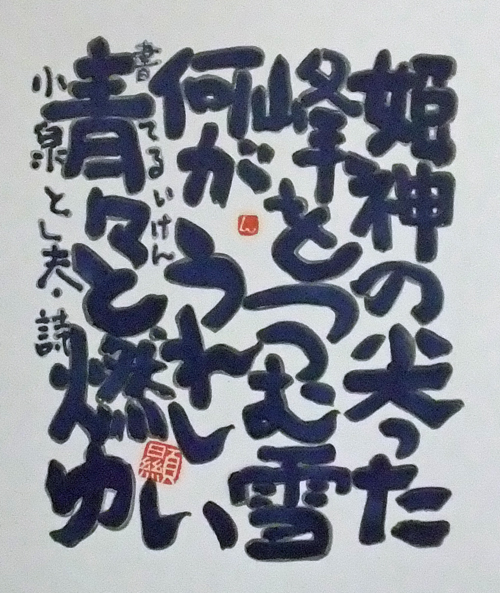 姫神の尖った
峰をつつむ雪
何がうれしい
青々と燃ゆ
書 てるいけん
小泉とし夫・詩
ん
顕